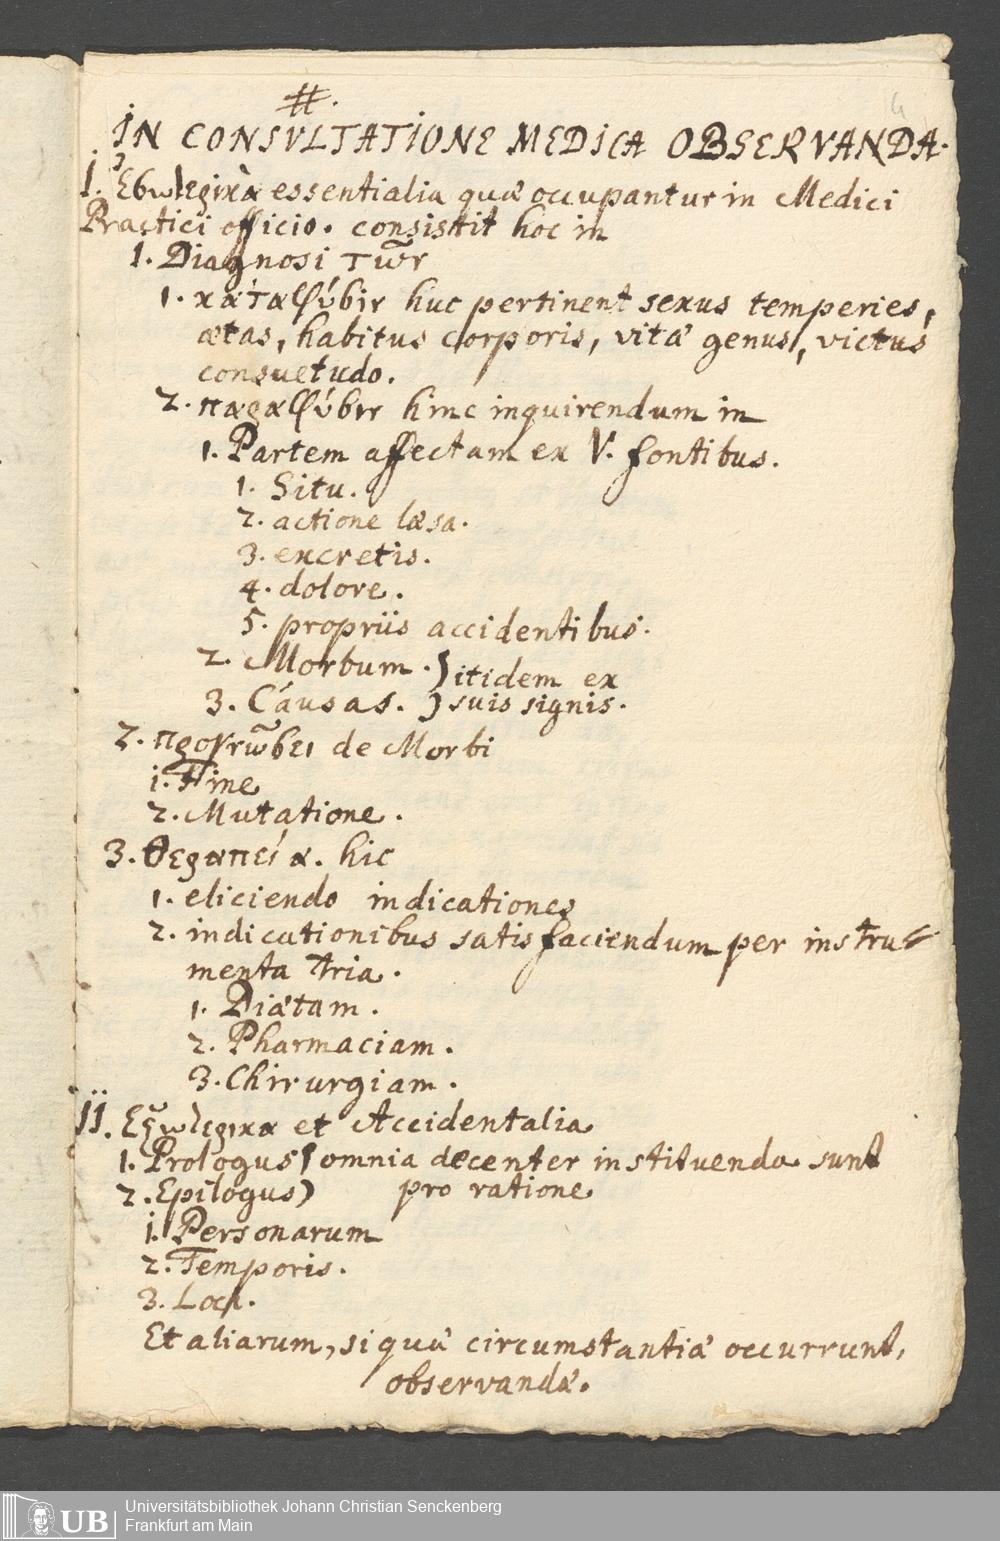 #.
4
IN CONSVLTATIONE MEDICA OBSERVANDA.
I. Ἐσωτερικὰ essentialia quæ occupantur in Medici
Practici officio. consistit hoc in
1. Diagnosi τῶν
1. κατα φύσιν huc pertinent sexus temperies,
ætas, habitus corporis, vitæ genus, victus
consuetudo.
2. παρα φύσιν hinc inquirendum in
1. Partem affectam ex V. fontibus.
1. Situ.
2. actione læsa.
3. excretis.
4. dolore.
5. propriis accidentibus.
2. Morbum. } itidem ex
3. Causas. } suis signis.
2. προγνῶσει de Morbi
1. Fine
2. Mutatione.
3. θεραπεία. hic
1. eliciendo indicationes
2. indicationibus satisfaciendum per instru-
menta Tria.
1. Diætam.
2. Pharmaciam.
3. Chirurgiam.
II. Εξωτερικα et Accidentalia
1. Prologus } omnia decenter instituenda sunt
2. Epilogus } pro ratione
1. Personarum
2. Temporis.
3. Loci.
Et aliarum, si quæ circumstantiæ occurrunt,
observandæ.
UB Universitätsbibliothek Johann Christian Senckenberg
Frankfurt am Main